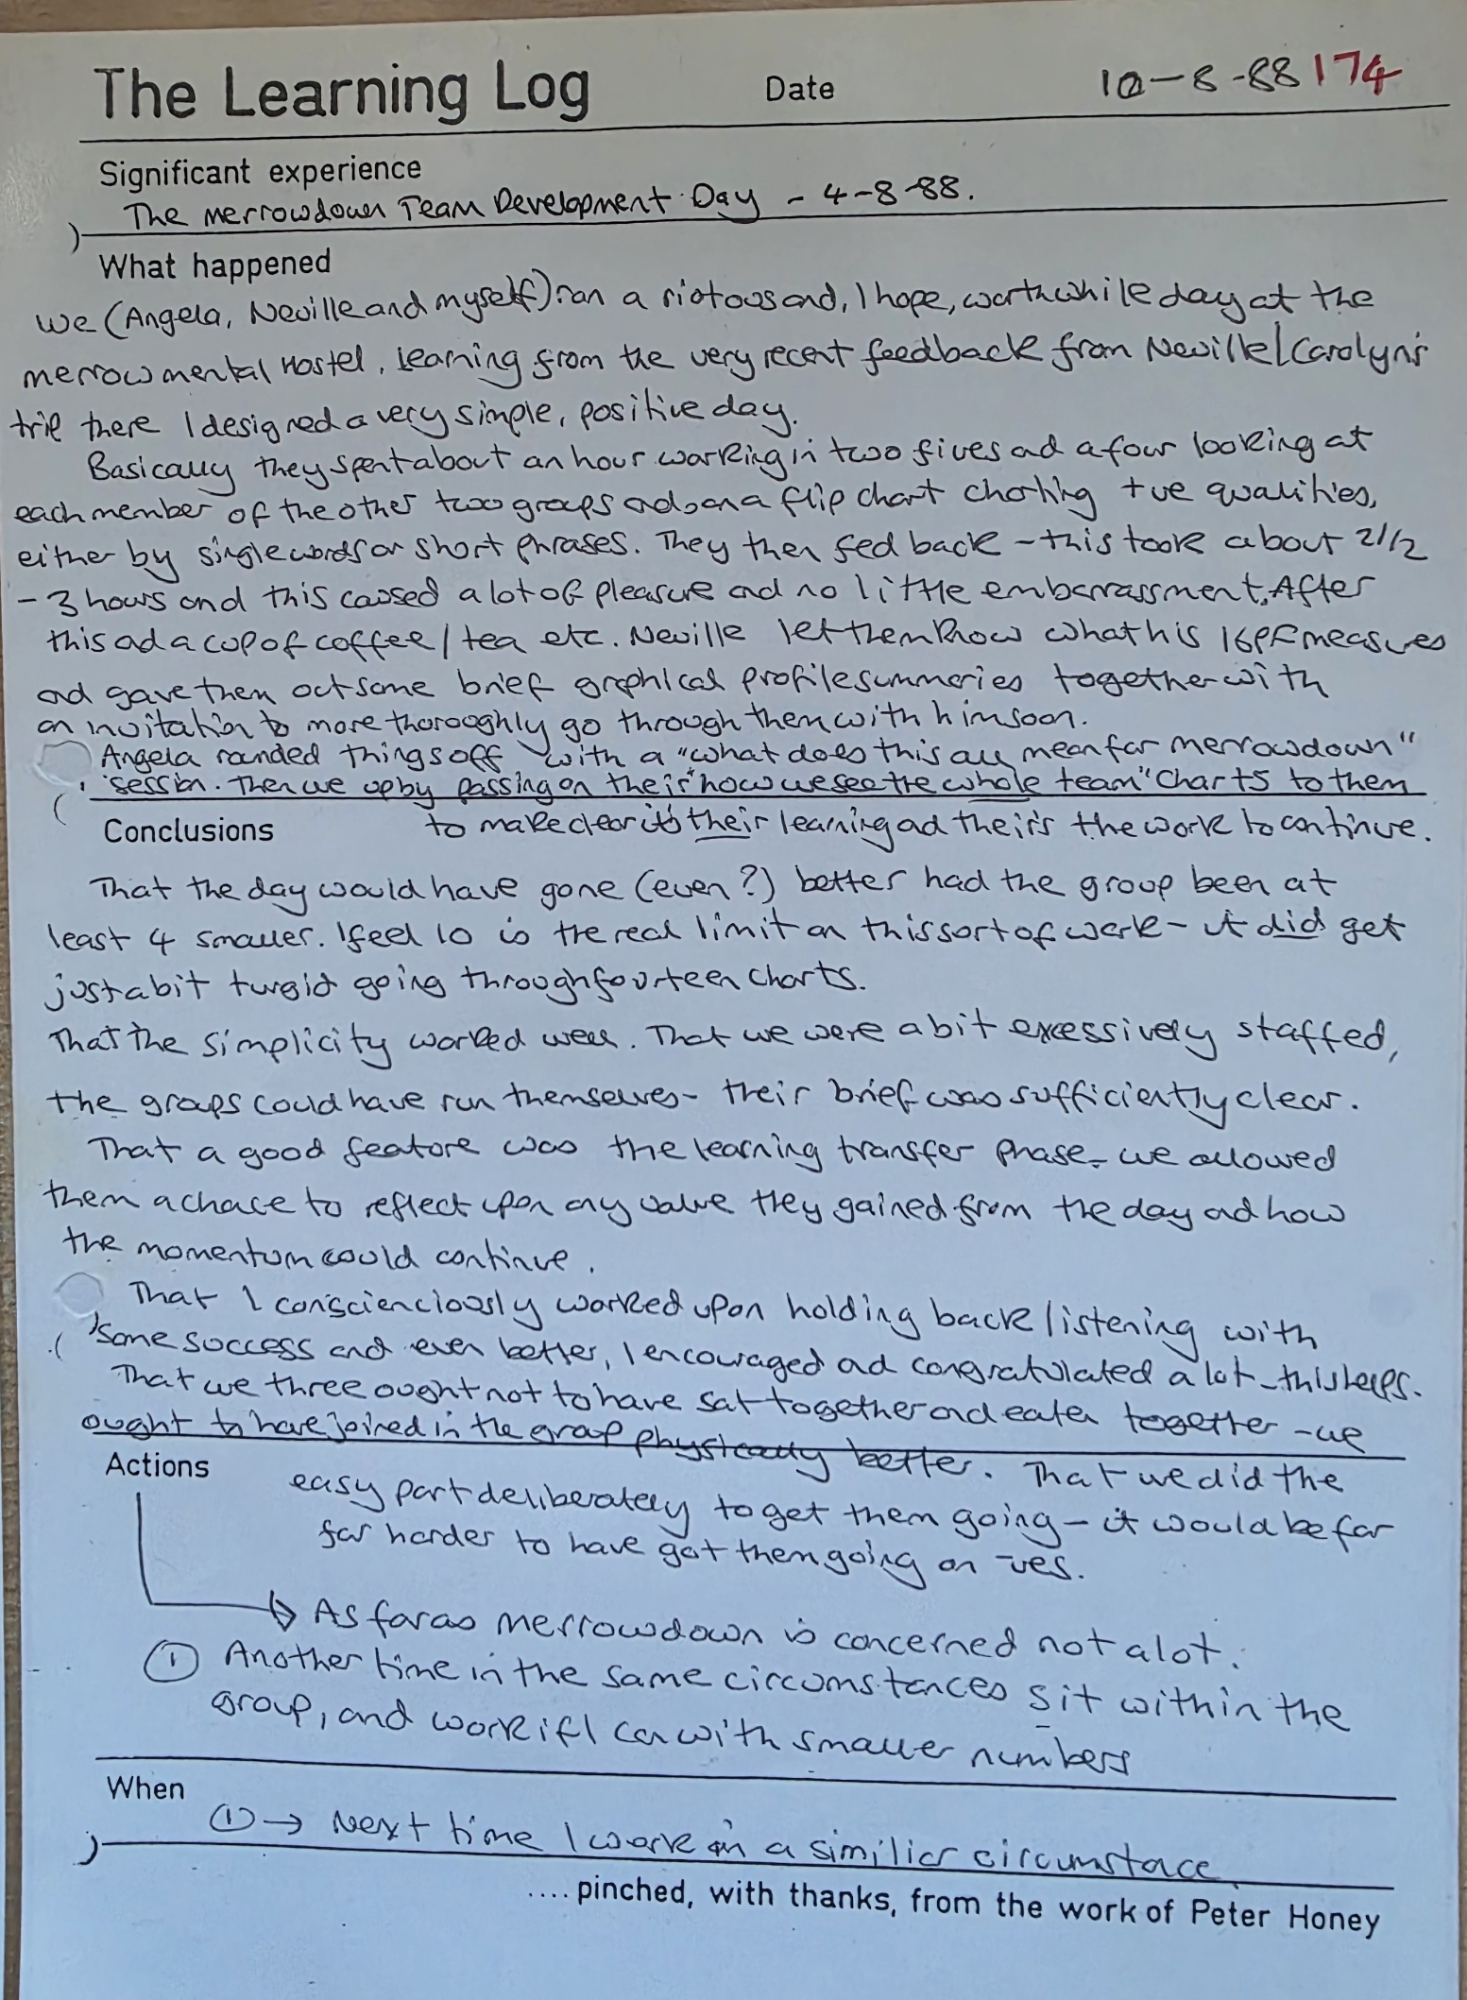 The Learning Log Date 10-8-88 174
Significant experience
The merrowdown Team Development Day - 4-8-88.
What happened
We (Angela, Neville and myself) ran a riotous and, I hope, worthwhile day at the
merrow mental Hostel. Learning from the very recent feedback from Neville/Carolyn's
trip there I designed a very simple, positive day.
Basically they spent about an hour working in two fives ad a four looking at
each member of the other two groups ad, on a flip chart charting +ve qualities,
either by single words or short phrases. They then fed back - this took about 2 1/2
- 3 hours and this caused a lot of pleasure ad no little embarrassment. After
this ad a cup of coffee / tea etc. Neville let them know what his 16PF measures
ad gave them out some brief graphical profile summeries together with
an invitation to more thoroughly go through them with him soon.
Angela rounded things off with a "what does this all mean for merrowdown"
session. Then we up by passing on their "how we see the whole team" charts to them
Conclusions to make clear it's their learning ad their's the work to continue.
That the day would have gone (even?) better had the group been at
least 4 smaller. I feel 10 is the real limit on this sort of work - it did get
just a bit turgid going through fourteen charts.
That the simplicity worked well. That we were a bit excessively staffed,
the groups could have run themselves - their brief was sufficiently clear.
That a good feature was the learning transfer phase - we allowed
them a chace to reflect upon any value they gained from the day ad how
the momentum could continue.
That I conscienciously worked upon holding back/listening with
some success and even better, I encouraged ad congratulated a lot - this helps.
That we three ought not to have sat together and eaten together - we
ought to have joined in the group physically better. That we did the
Actions easy part deliberately to get them going - it would be far
far harder to have got them going on -ves.
As far as merrowdown is concerned not a lot.
① Another time in the same circumstances sit within the
group, and work if I can with smaller numbers
When
① → Next time I work in a similier circumstace
.... pinched, with thanks, from the work of Peter Honey